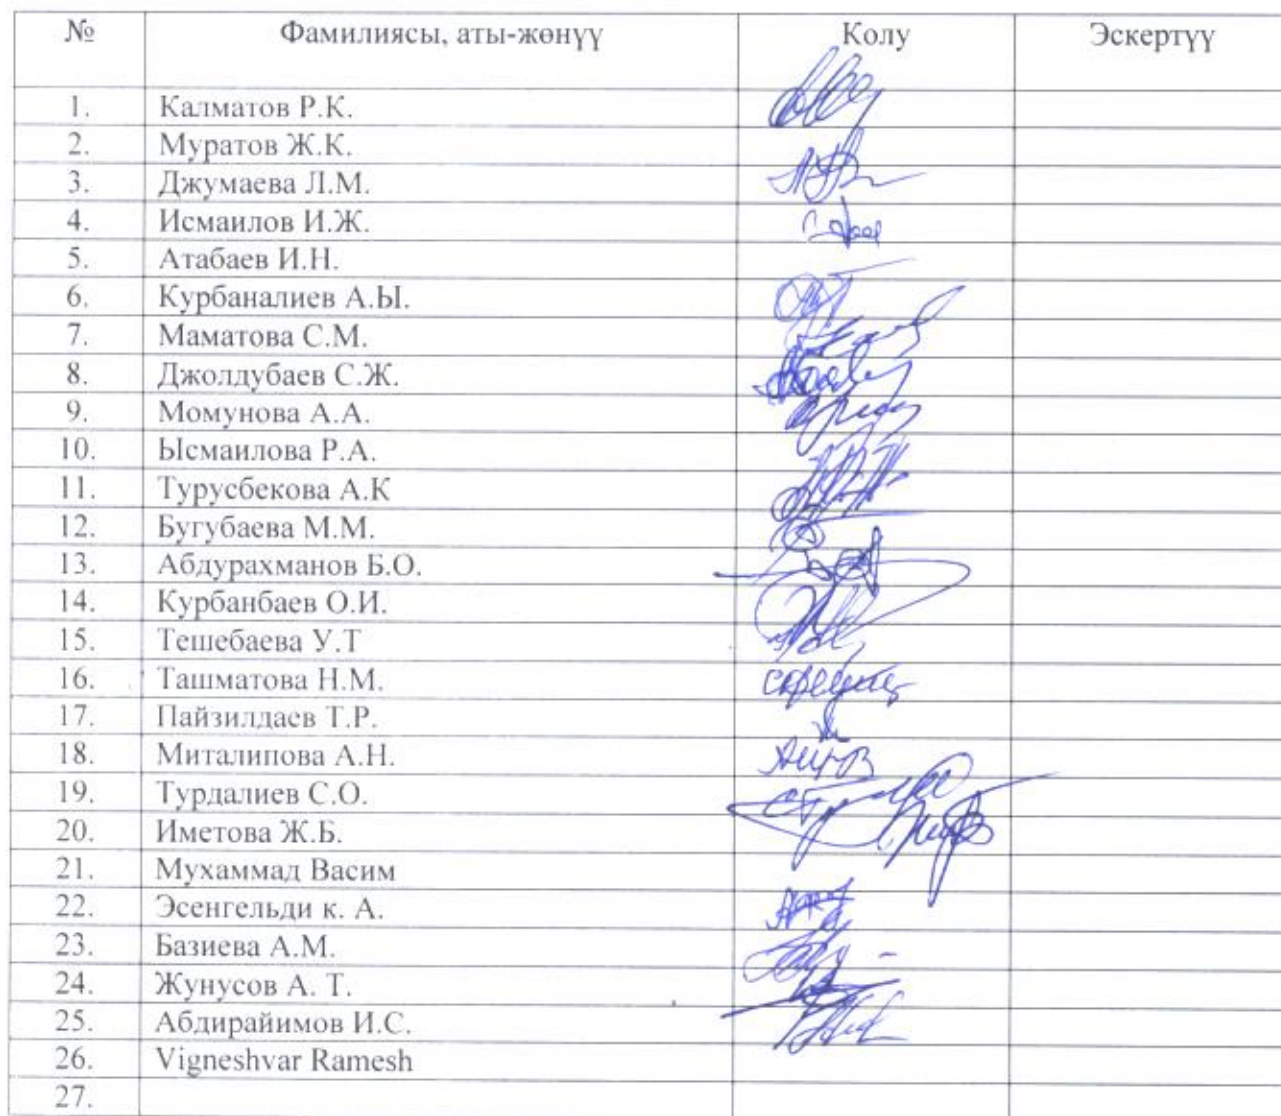 № Фамилиясы, аты-жөнүү Колу Эскертүү
1. Калматов Р.К.
2. Муратов Ж.К.
3. Джумаева Л.М.
4. Исмаилов И.Ж.
5. Атабаев И.Н.
6. Курбаналиев А.Ы.
7. Маматова С.М.
8. Джолдубаев С.Ж.
9. Момунова А.А.
10. Ысмаилова Р.А.
11. Турусбекова А.К
12. Бугубаева М.М.
13. Абдурахманов Б.О.
14. Курбанбаев О.И.
15. Тешебаева У.Т
16. Ташматова Н.М.
17. Пайзилдаев Т.Р.
18. Миталипова А.Н.
19. Турдалиев С.О.
20. Иметова Ж.Б.
21. Мухаммад Васим
22. Эсенгельди к. А.
23. Базиева А.М.
24. Жунусов А. Т.
25. Абдирайимов И.С.
26. Vigneshvar Ramesh
27.